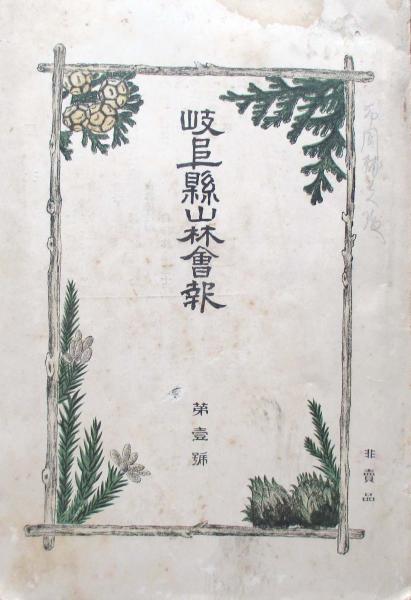 岐阜縣山林會報
第壹號
非賣品